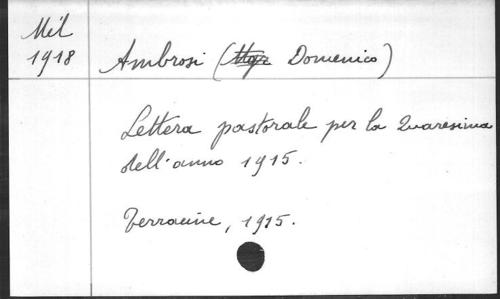 Mél
1918
Ambrosi (Mgr Domenico)
Lettera pastorale per la Quaresima
dell'anno 1915.
Terracine, 1915.